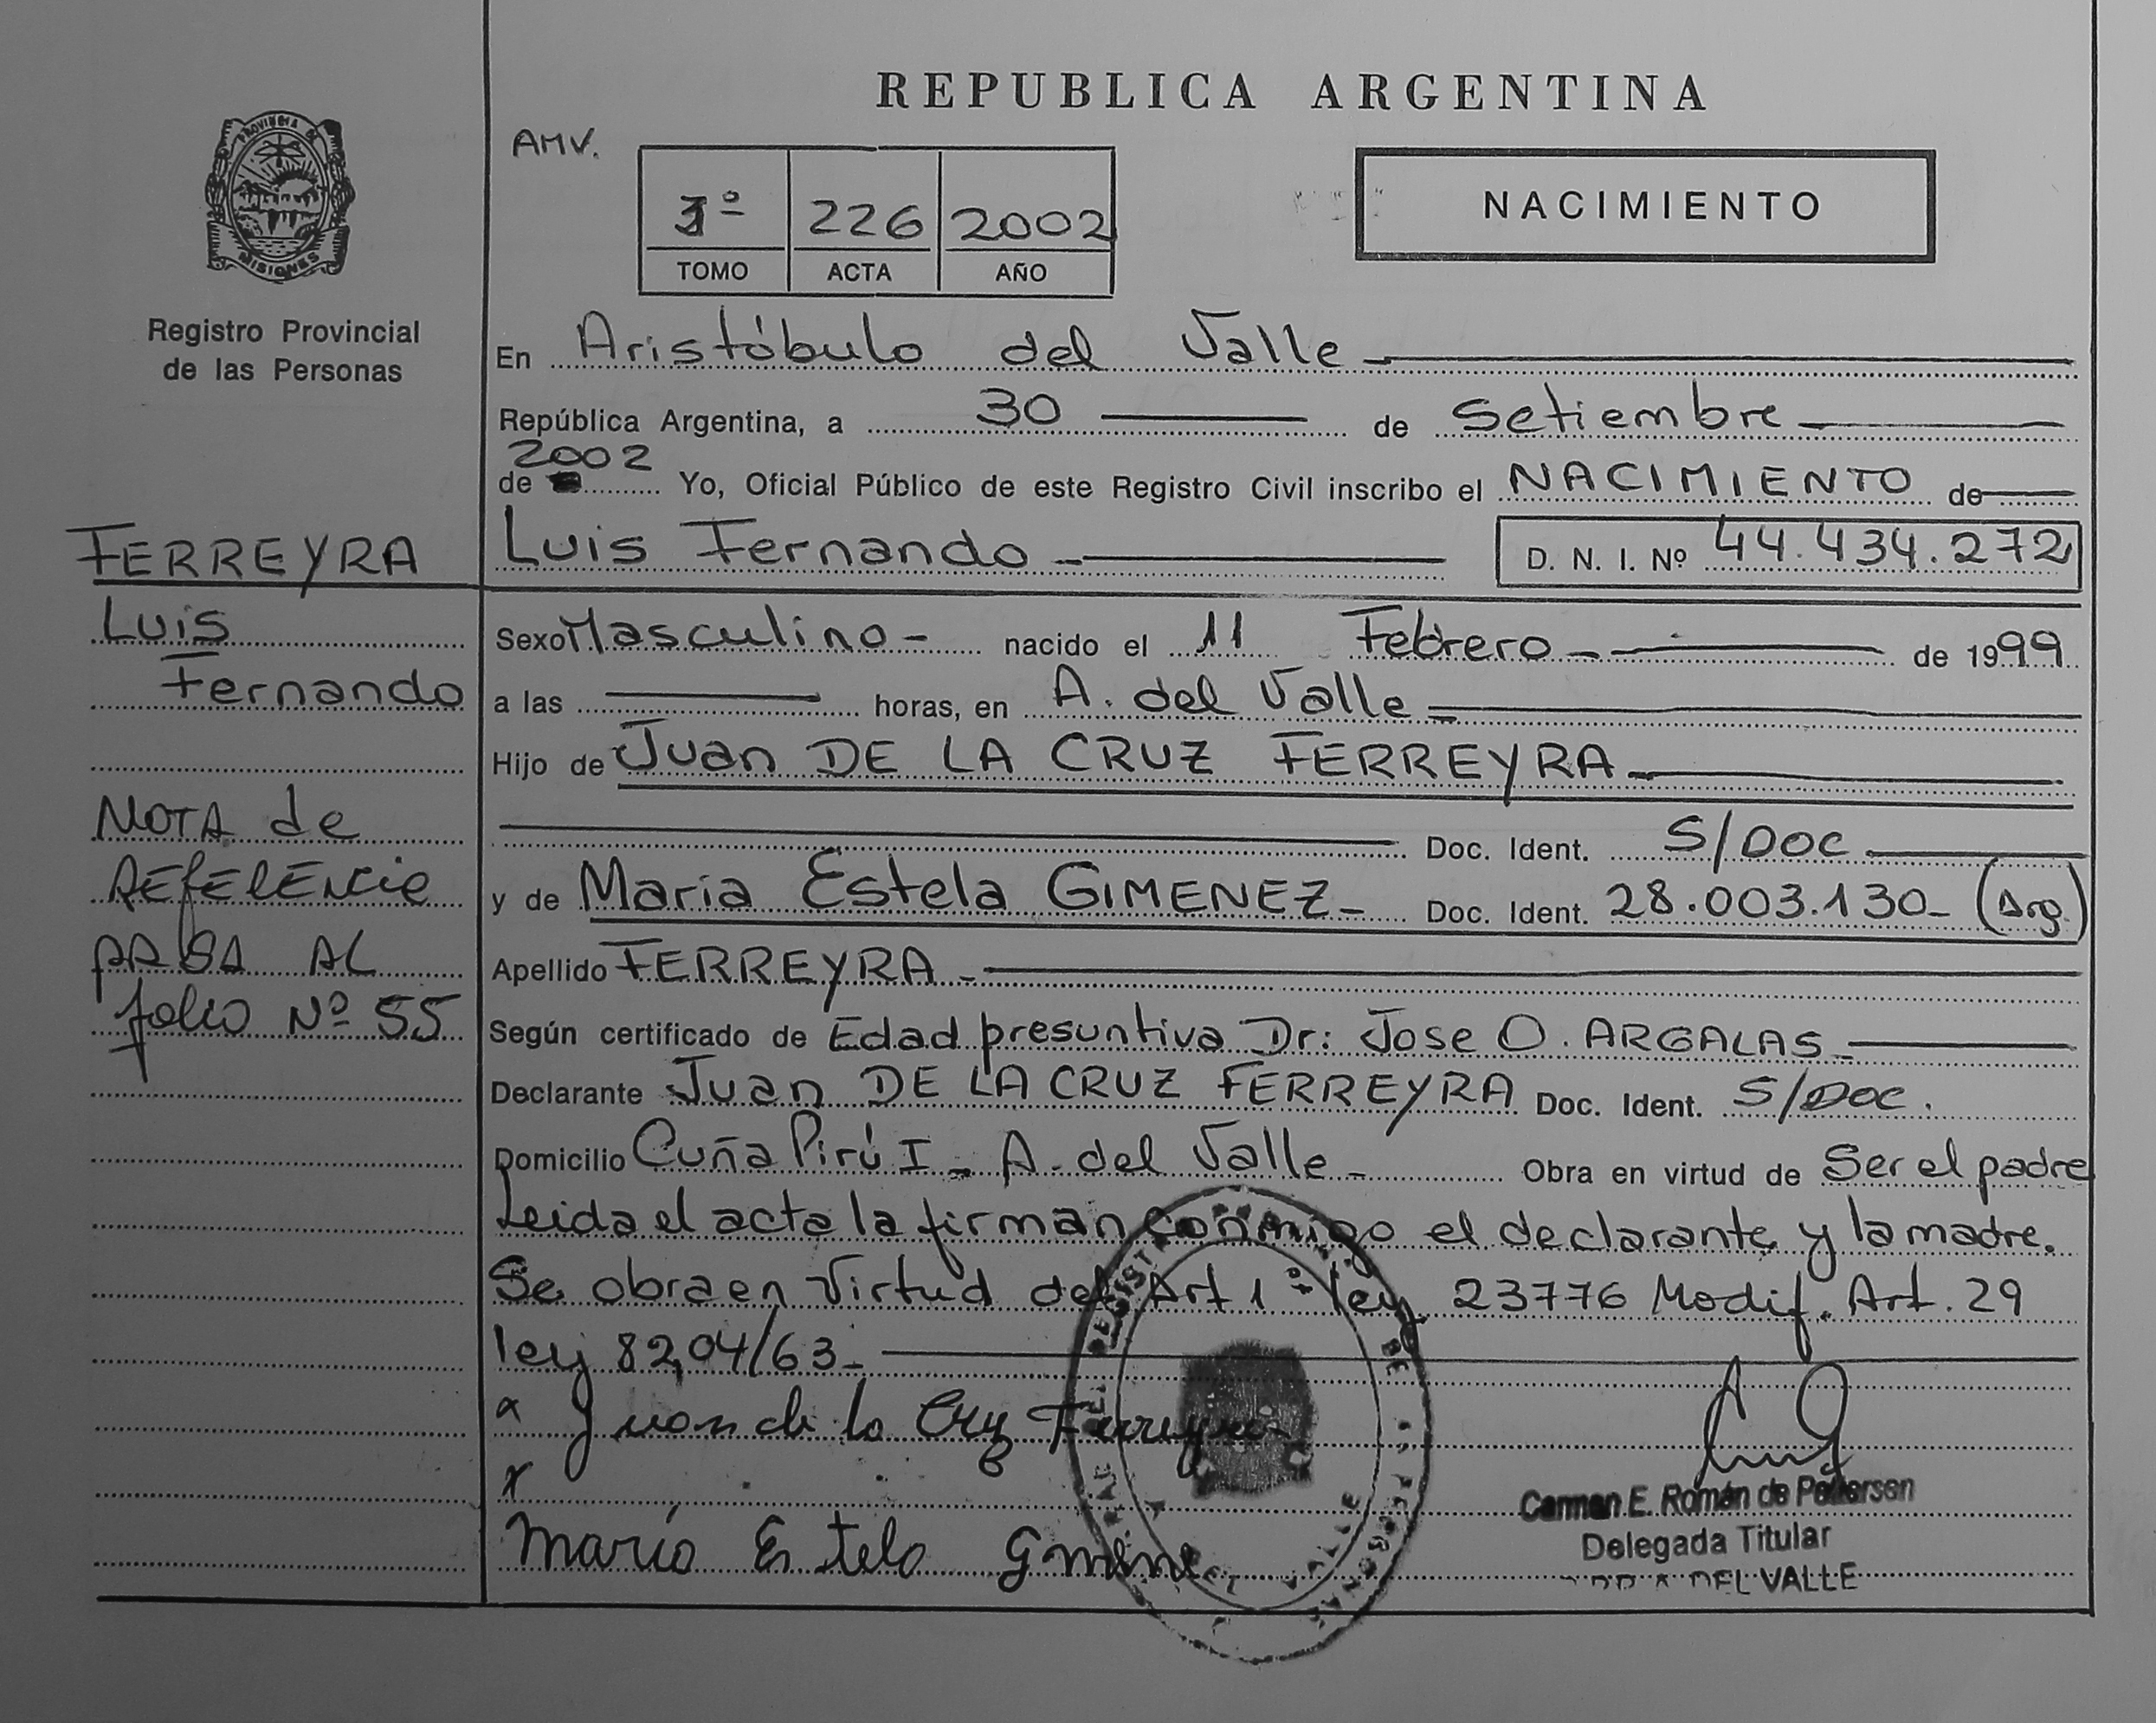 REPUBLICA ARGENTINA
PROVINCIA DE
MISIONES
Registro Provincial
de las Personas
AMV.
1º 226 2002
TOMO ACTA AÑO
NACIMIENTO
En Aristóbulo del Valle
República Argentina, a 30 de Setiembre
2002
de Yo, Oficial Público de este Registro Civil inscribo el NACIMIENTO de
FERREYRA
Luis Fernando
D. N. I. Nº 44.434.272
Luis
Fernando
Sexo Masculino - nacido el 11 Febrero de 1999
a las horas, en A. del Valle
Hijo de Juan DE LA CRUZ FERREYRA
Doc. Ident. S/DOC
y de Maria Estela GIMENEZ Doc. Ident. 28.003.130 (Arg.)
Apellido FERREYRA
Según certificado de Edad presuntiva Dr: Jose O. ARGALAS
Declarante Juan DE LA CRUZ FERREYRA Doc. Ident. S/DOC.
Domicilio Cuña Pirú I - A. del Valle Obra en virtud de Ser el padre
Leida el acta la firman conmigo el declarante y la madre.
Se obra en Virtud del Art 1º ley 23776 Modif. Art. 29
ley 8204/63
NOTA de
REFERENCIA
PASA AL
folio Nº 55
x Juan de la Cruz Ferreyra
x
Maria Estela
Carmen E. Román de Pettersen
Delegada Titular
DEL VALLE